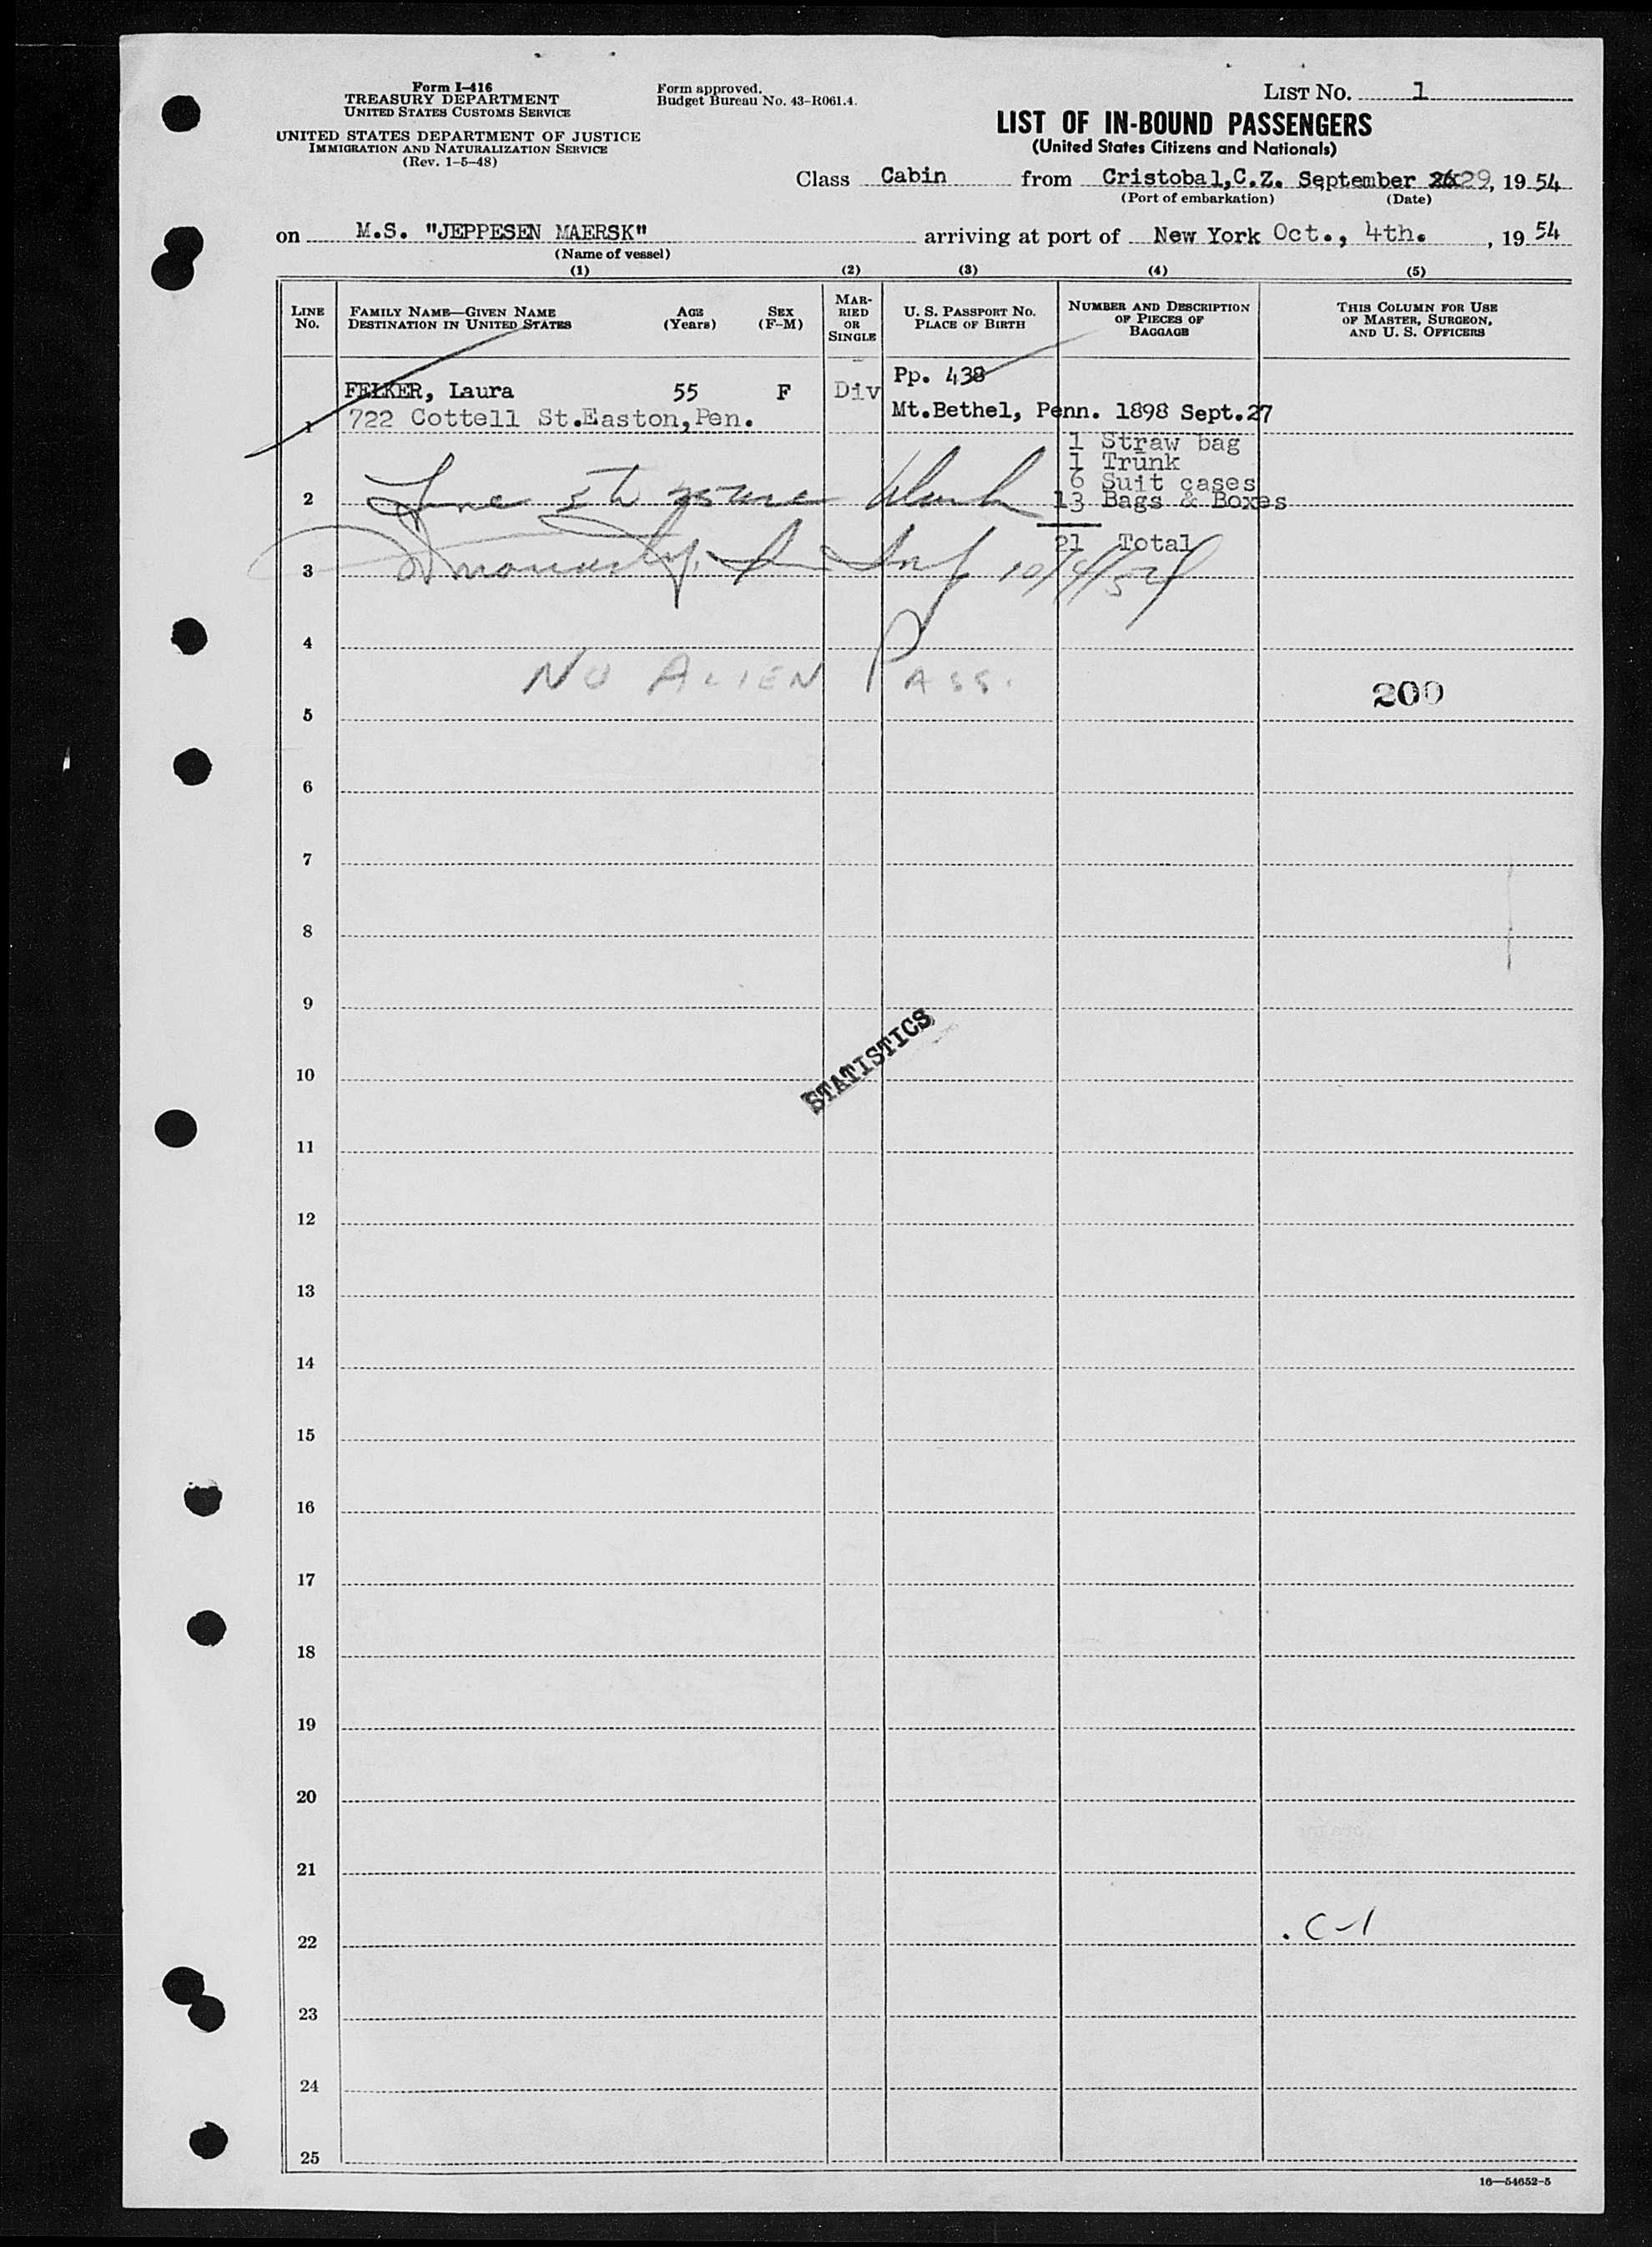 Form I-416
TREASURY DEPARTMENT
UNITED STATES CUSTOMS SERVICE
UNITED STATES DEPARTMENT OF JUSTICE
IMMIGRATION AND NATURALIZATION SERVICE
(Rev. 1-5-48)
Form approved.
Budget Bureau No. 43-R061.4.
LIST NO. 1
LIST OF IN-BOUND PASSENGERS
(United States Citizens and Nationals)
Class Cabin from Cristobal,C.Z. September 29, 1954
(Port of embarkation) (Date)
on M.S. "JEPPESEN MAERSK" arriving at port of New York Oct., 4th. , 19 54
(Name of vessel)
(1) (2) (3) (4) (5)
LINE No.
FAMILY NAME—GIVEN NAME
DESTINATION IN UNITED STATES
AGE (Years)
SEX (F-M)
MARRIED OR SINGLE
U. S. PASSPORT NO.
PLACE OF BIRTH
NUMBER AND DESCRIPTION OF PIECES OF BAGGAGE
THIS COLUMN FOR USE OF MASTER, SURGEON, AND U. S. OFFICERS
FELKER, Laura 55 F Div Pp. 438
1 722 Cottell St.Easton,Pen. Mt.Bethel, Penn. 1898 Sept.27
1 Straw bag
1 Trunk
6 Suit cases
2 13 Bags & Boxes
21 Total
3 10/4/54
4
NO ALIEN PASS.
200
5
6
7
8
9
STATISTICS
10
11
12
13
14
15
16
17
18
19
20
21
. C-1
22
23
24
25
16—54652-5